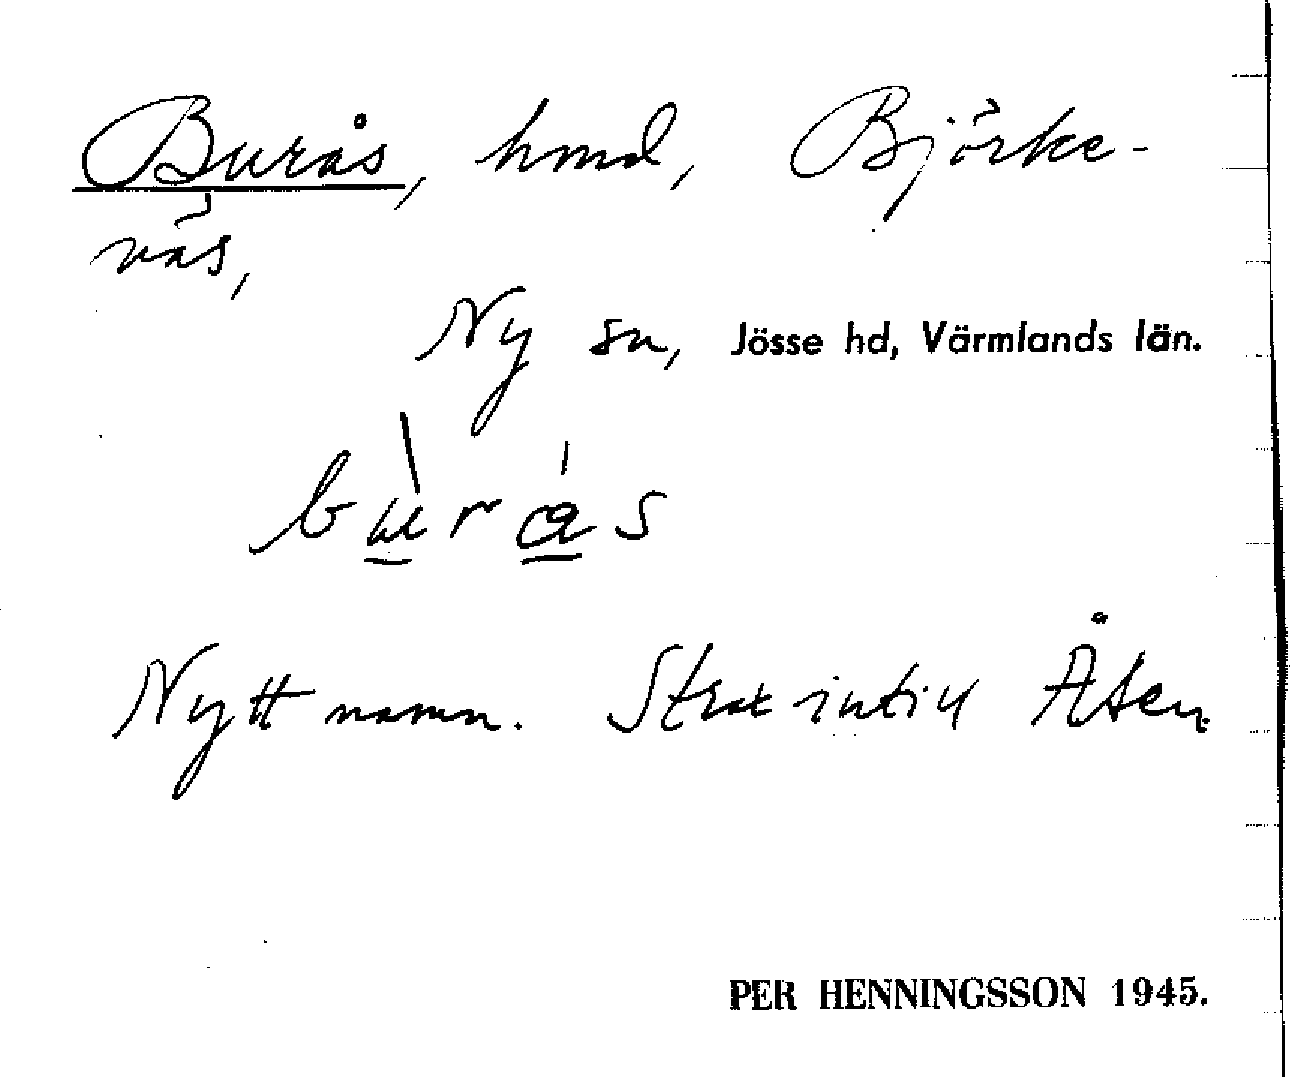 Burås, hmd, Björke-
näs,
Ny sn, Jösse hd, Värmlands län.
bùrás
Nytt namn. Strax intill Åsen
PER HENNINGSSON 1945.